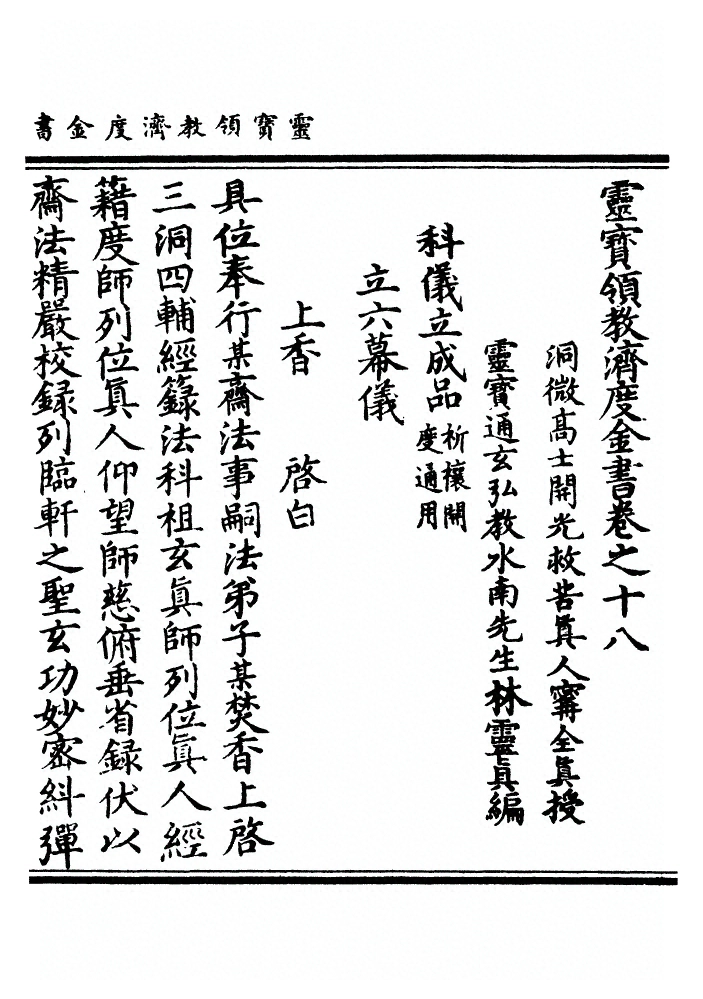 靈寶領教濟度金書
靈寶領教濟度金書卷之十八
洞微高士開光救苦真人寗全真授
靈寶通玄弘教水南先生林靈真編
科儀立成品祈禳開度通用
立六幕儀
上香　啓白
具位奉行某齋法事嗣法弟子某焚香上啓
三洞四輔經籙法科祖玄真師列位真人經
籍度師列位真人仰望師慈俯垂省録伏以
齋法精嚴校録列臨軒之聖玄功妙密糾彈